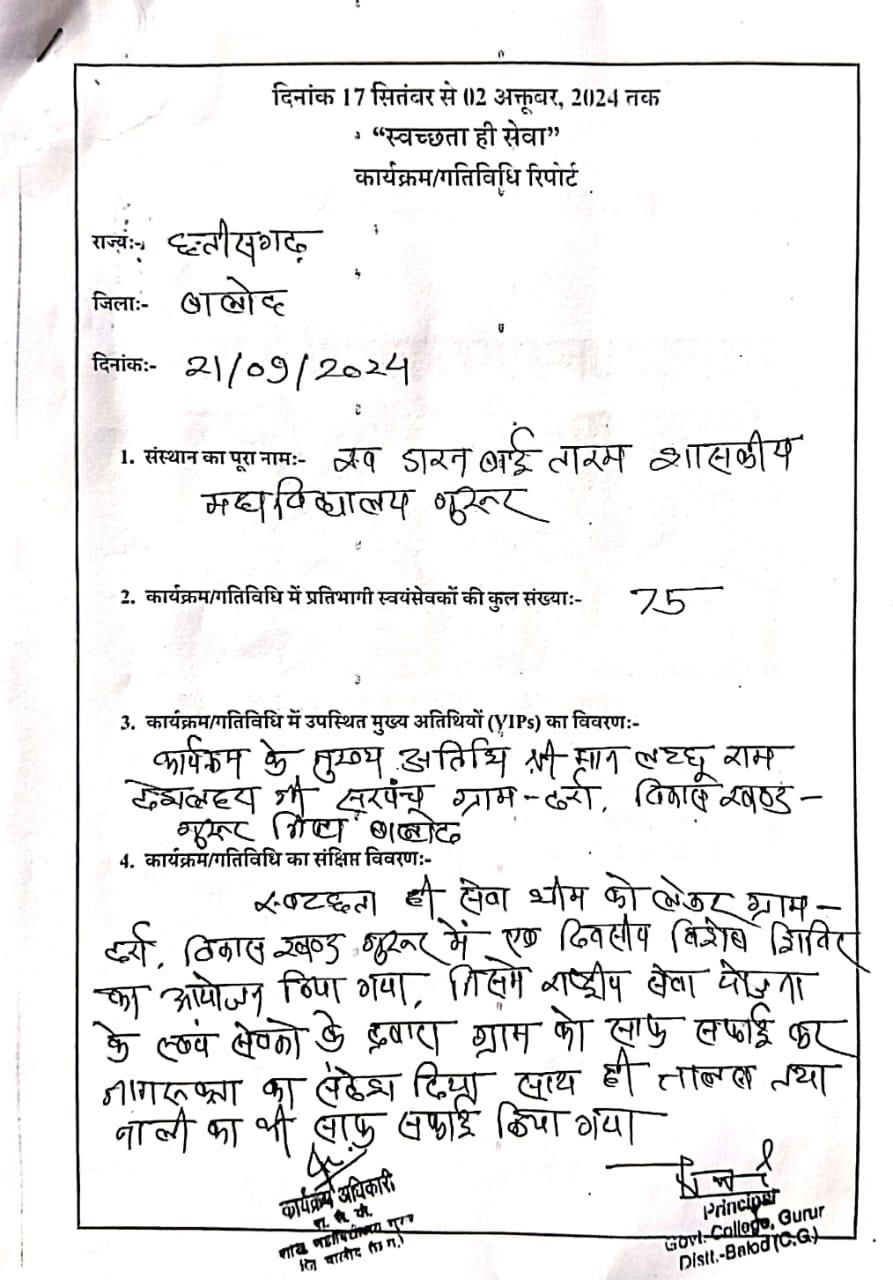 दिनांक 17 सितंबर से 02 अक्तूबर, 2024 तक
“स्वच्छता ही सेवा”
कार्यक्रम/गतिविधि रिपोर्ट
राज्य:- छत्तीसगढ़
जिला:- बालोद
दिनांक:- 21/09/2024
1. संस्थान का पूरा नाम:- स्व डारन बाई तारम शासकीय
महाविद्यालय गुरूर
2. कार्यक्रम/गतिविधि में प्रतिभागी स्वयंसेवकों की कुल संख्या:- 75
3. कार्यक्रम/गतिविधि में उपस्थित मुख्य अतिथियों (VIPs) का विवरण:-
कार्यक्रम के मुख्य अतिथि श्री मान लच्छू राम
जी सरपंच ग्राम-टर्रा, विकास खण्ड-
गुरूर जिला बालोद
4. कार्यक्रम/गतिविधि का संक्षिप्त विवरण:-
स्वच्छता ही सेवा थीम को लेकर ग्राम-
टर्रा, विकास खण्ड गुरूर में एक दिवसीय विशेष शिविर
का आयोजन किया गया, जिसमे राष्ट्रीय सेवा योजना
के स्वयं सेवको के द्वारा ग्राम को साफ सफाई कर
जागरूकता का संदेश दिया साथ ही तालाब तथा
नाली का भी साफ सफाई किया गया
कार्यक्रम अधिकारी
रा. से. यो.
शास. महाविद्यालय गुरूर
जि. बालोद (छ.ग.)
Principal
Govt. College, Gurur
Distt.-Balod (C.G.)